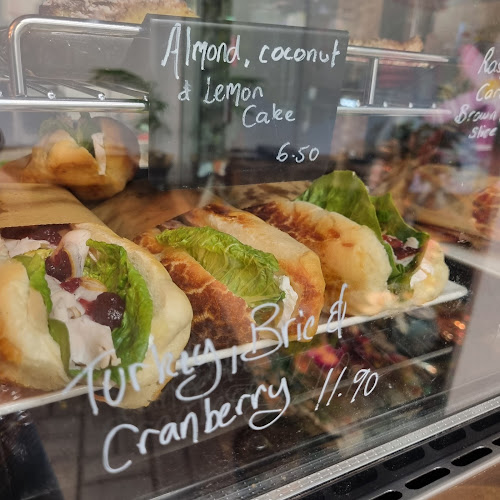 Almond, coconut
& Lemon
Cake
6.50
Brown
Turkey, Brie &
Cranberry 11.90